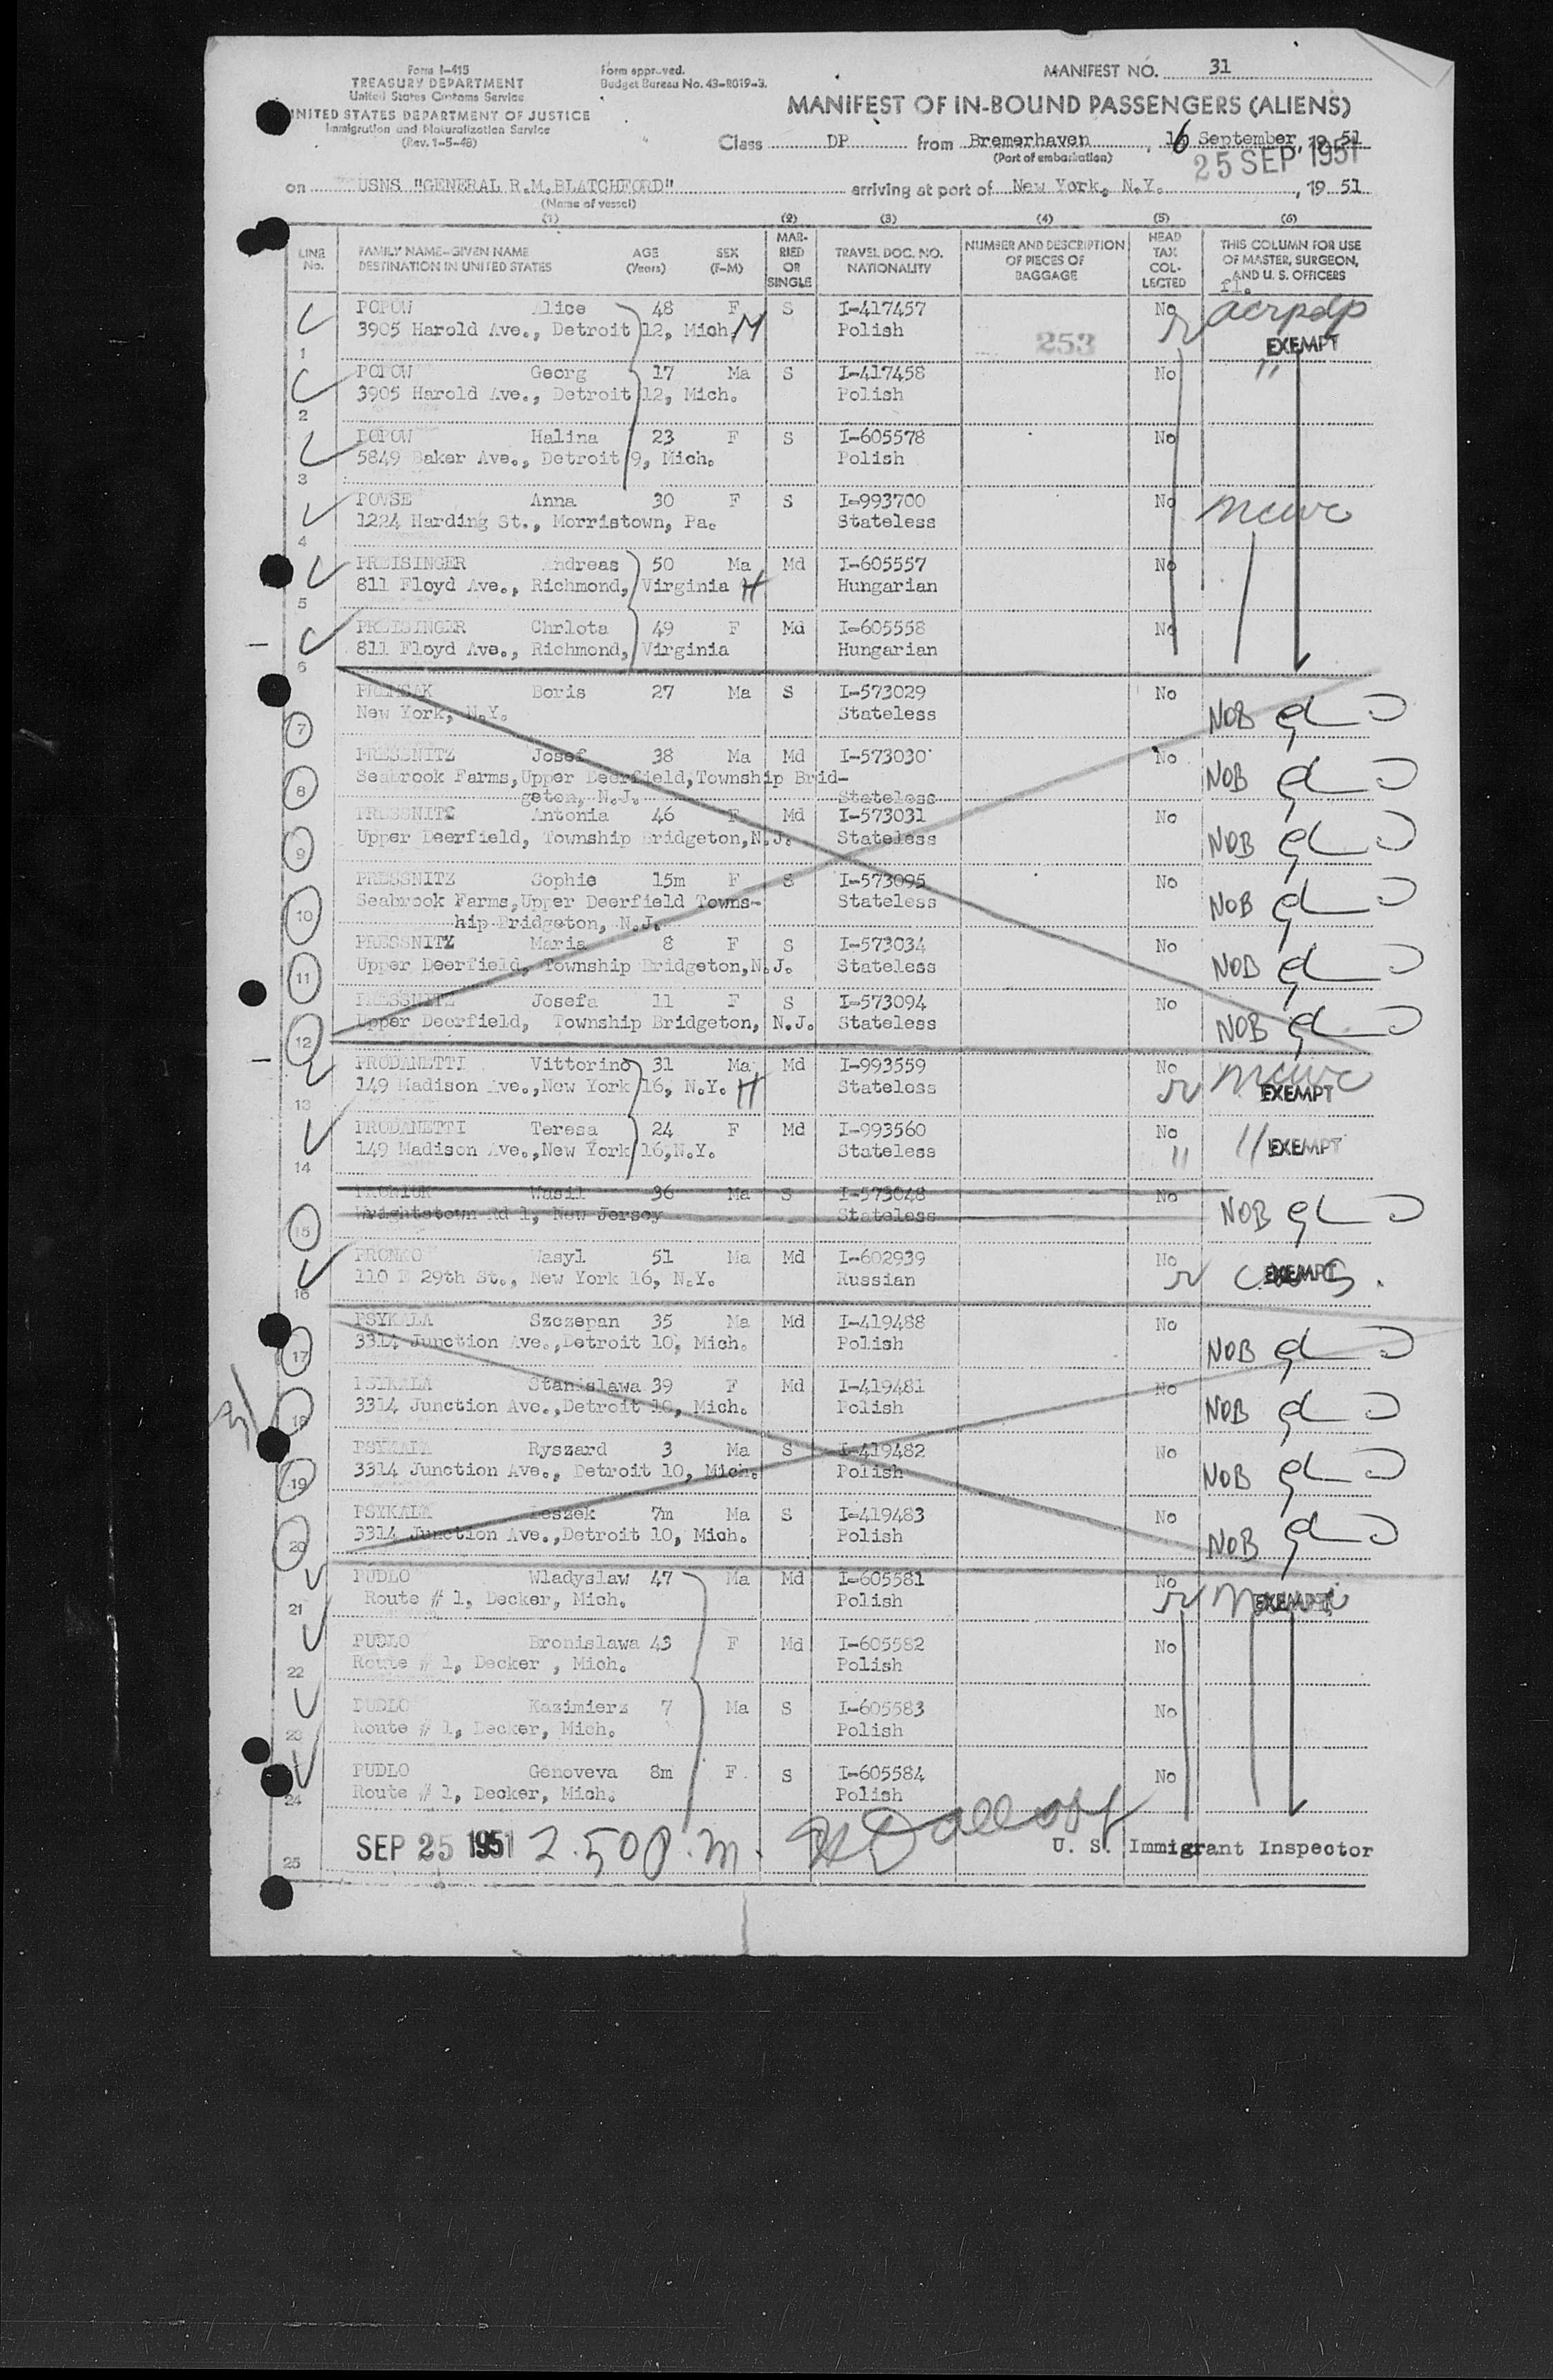 Form I-415
TREASURY DEPARTMENT
United States Customs Service
UNITED STATES DEPARTMENT OF JUSTICE
Immigration and Naturalization Service
(Rev. 1-5-48)
Form approved.
Budget Bureau No. 43-R019-3.
MANIFEST NO. 31
MANIFEST OF IN-BOUND PASSENGERS (ALIENS)
Class DP from Bremerhaven, 16 September, 19 51
(Port of embarkation)
25 SEP 1951
on USNS "GENERAL R.M.BLATCHFORD" arriving at port of New York, N.Y. , 19 51
(Name of vessel)
(1) (2) (3) (4) (5) (6)
LINE No. FAMILY NAME-GIVEN NAME DESTINATION IN UNITED STATES AGE (Years) SEX (F-M) MARRIED OR SINGLE TRAVEL DOC. NO. NATIONALITY NUMBER AND DESCRIPTION OF PIECES OF BAGGAGE HEAD TAX COLLECTED THIS COLUMN FOR USE OF MASTER, SURGEON, AND U. S. OFFICERS
POPOW Alice 48 F S I-417457 No
3905 Harold Ave., Detroit 12, Mich. M Polish 253 EXEMPT
1
POPOW Georg 17 Ma S I-417458 No "
3905 Harold Ave., Detroit 12, Mich. Polish
2
POPOW Halina 23 F S I-605578 No
5849 Baker Ave., Detroit 9, Mich. Polish
3
POVSE Anna 30 F S I-993700 No
1224 Harding St., Morristown, Pa. Stateless
4
PREISINGER Andreas 50 Ma Md I-605557 No
811 Floyd Ave., Richmond, Virginia H Hungarian
5
PREISINGER Chrlota 49 F Md I-605558 No
811 Floyd Ave., Richmond, Virginia Hungarian
6
Boris 27 Ma S I-573029 No
New York, N.Y. Stateless NOB
7
PRESSNITZ Josef 38 Ma Md I-573030 No
Seabrook Farms,Upper Deerfield,Township Brid-
geton, N.J. Stateless NOB
8
PRESSNITZ Antonia 46 F Md I-573031 No
Upper Deerfield, Township Bridgeton,N.J. Stateless NOB
9
PRESSNITZ Sophie 15m F S I-573095 No
Seabrook Farms,Upper Deerfield Towns- Stateless NOB
hip Bridgeton, N.J.
10
PRESSNITZ Maria 8 F S I-573034 No
Upper Deerfield, Township Bridgeton,N.J. Stateless NOB
11
PRESSNITZ Josefa 11 F S I-573094 No
Upper Deerfield, Township Bridgeton, N.J. Stateless NOB
12
PRODANETTI Vittorino 31 Ma Md I-993559 No
149 Madison Ave.,New York 16, N.Y. H Stateless EXEMPT
13
PRODANETTI Teresa 24 F Md I-993560 No
149 Madison Ave.,New York 16,N.Y. Stateless " " EXEMPT
14
Wasil 36 Ma S I-573048 No
Wrightstown Rd 1, New Jersey Stateless NOB
15
PRONKO Wasyl 51 Ma Md I-602939 No
110 E 29th St., New York 16, N.Y. Russian EXEMPT
16
PSYKALA Szczepan 35 Ma Md I-419488 No
3314 Junction Ave.,Detroit 10, Mich. Polish NOB
17
PSYKALA Stanislawa 39 F Md I-419481 No
3314 Junction Ave.,Detroit 10, Mich. Polish NOB
18
PSYKALA Ryszard 3 Ma S I-419482 No
3314 Junction Ave., Detroit 10, Mich. Polish NOB
19
PSYKALA Leszek 7m Ma S I-419483 No
3314 Junction Ave.,Detroit 10, Mich. Polish NOB
20
PUDLO Wladyslaw 47 Ma Md I-605581 No
Route # 1, Decker, Mich. Polish EXEMPT
21
PUDLO Bronislawa 43 F Md I-605582 No
Route # 1, Decker , Mich. Polish
22
PUDLO Kazimierz 7 Ma S I-605583 No
Route # 1, Decker, Mich. Polish
23
PUDLO Genoveva 8m F. S I-605584 No
Route # 1, Decker, Mich. Polish
24
SEP 25 1951 2.50 p.m.
U. S. Immigrant Inspector
25